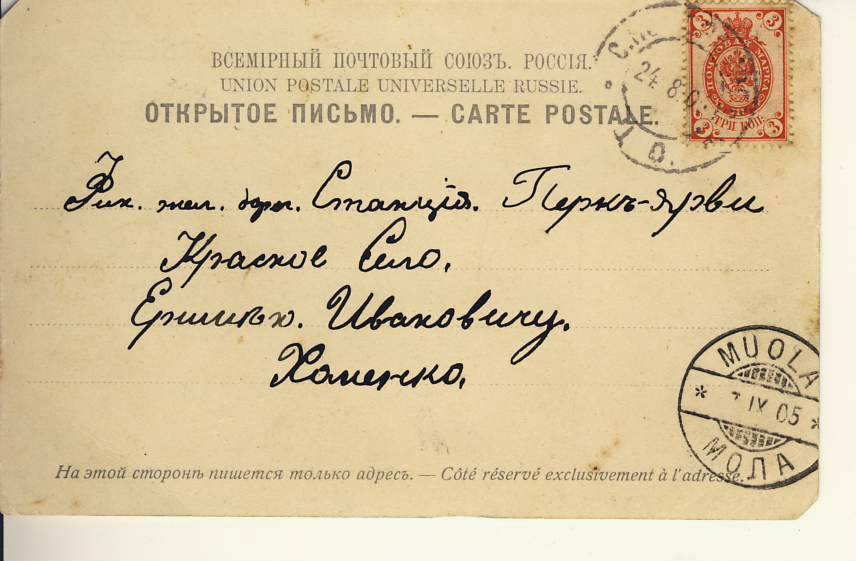 ВСЕМІРНЫЙ ПОЧТОВЫЙ СОЮЗЪ. РОССІЯ.
UNION POSTALE UNIVERSELLE RUSSIE.
ОТКРЫТОЕ ПИСЬМО. — CARTE POSTALE.
3 3
ПОЧТОВАЯ МАРКА
ТРИ КОП.
3 3
24 8 0
Фин. жел. дорог. Станція. Перкъ-ярви
Красное Село.
Ивановичу.
Хоменко.
MUOLA
IX 05
МОЛА
На этой сторонѣ пишется только адресъ. — Côté réservé exclusivement à l'adresse.